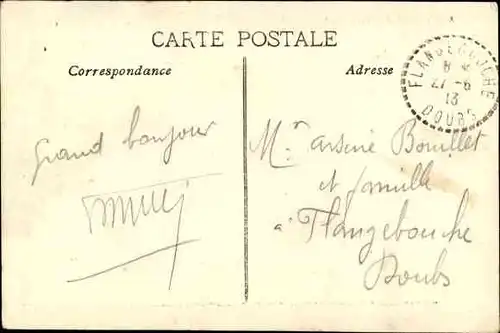 CARTE POSTALE
Correspondance
Adresse
FLANGEBOUCHE
27-6
13
DOUBS
Grand bonjour
Mr. arsène Bouillet
et famille
à Flangebouche
Doubs